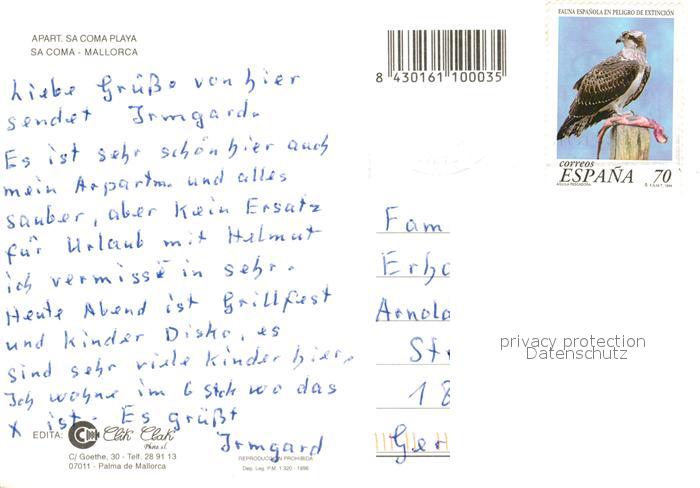 APART. SA COMA PLAYA
SA COMA - MALLORCA
Liebe Grüße von hier
sendet Irmgard.
Es ist sehr schön hier auch
mein Arpartm. und alles
sauber, aber kein Ersatz
für Urlaub mit Helmut
ich vermisse in sehr.
Heute Abend ist Grillfest
und Kinder Disko, es
sind sehr viele Kinder hier.
Ich wohne im 6 Stck wo das
x ist. Es grüßt
Irmgard
EDITA: Clik Clak
Photo s.l.
C/ Goethe, 30 - Telf. 28 91 13
07011 - Palma de Mallorca
REPRODUCCION PROHIBIDA
Dep. Leg. P.M. 1.320 - 1996
8 430161 100035
FAUNA ESPAÑOLA EN PELIGRO DE EXTINCIÓN
correos
ESPAÑA 70
AGUILA PESCADORA
Fam
Erho
Arnold
Str
18
Ger
privacy protection
Datenschutz